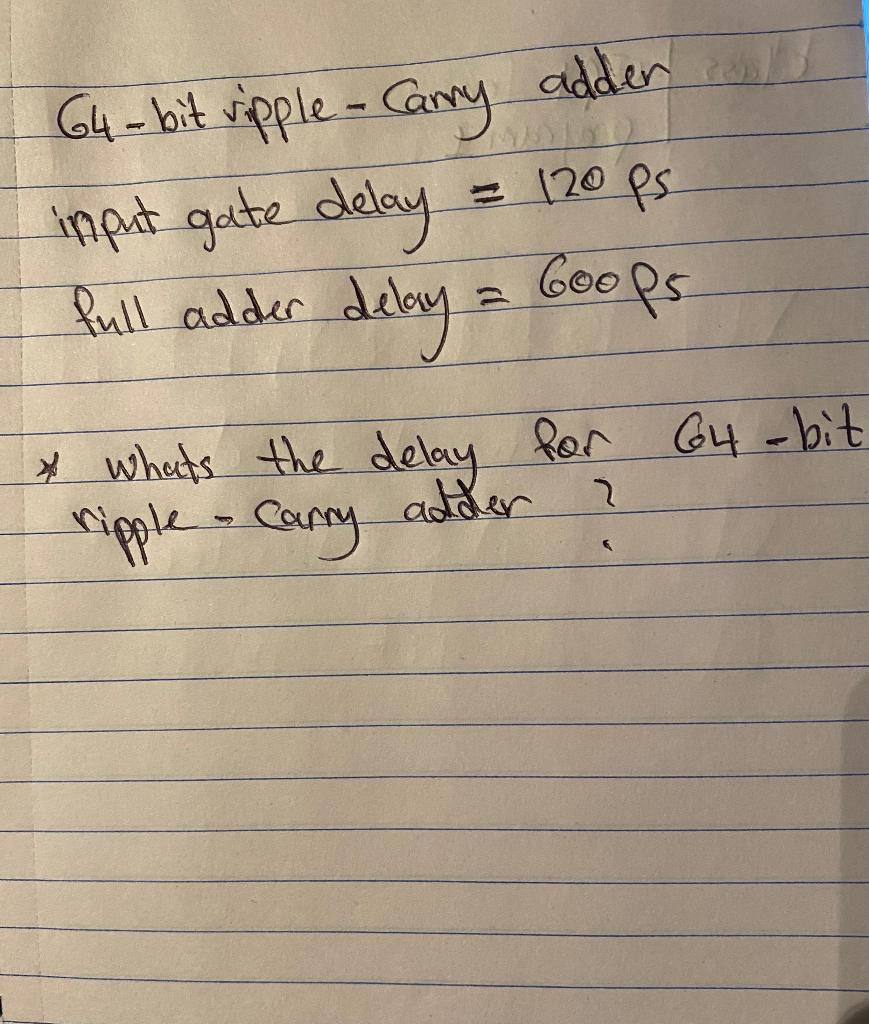 64-bit ripple-Carry adder
input gate delay = 120 ps
full adder delay = 600 ps
* Whats the delay for 64-bit
ripple-Carry adder ?